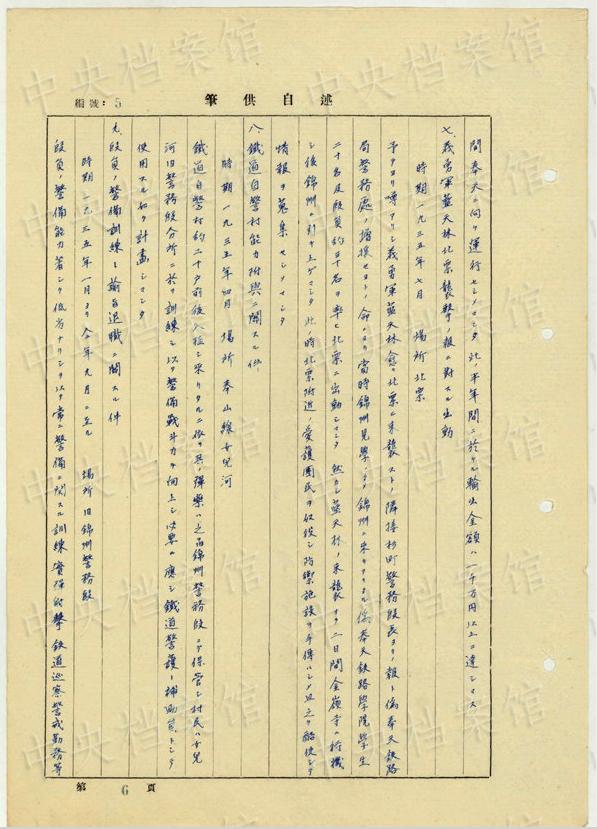 中央档案馆
編號：5
筆供自述
間奉天ニ向ケ運行セシメマシタ此ノ半年間ニ於ケル輸出金額ハ一千万円以上ニ達シマス
七、義勇軍藍天林北票襲撃ノ報ニ対スル出動
時期 一九三五年七月 場所 北票
予テヨリ噂アリシ義勇軍藍天林愈々北票ニ来襲ストノ隣接杉町警務段長ヨリノ報ト偽奉天鉄路
局警務處ノ増援セヨトノ命ニヨリ当時錦州見学ノタメ錦州ニ来リアリタル偽奉天鉄路學院學生
二十名及段員約三十名ヲ率ヒ北票ニ出動シマシタ 然カシ藍天林ノ来襲ナク二日間金嶺寺ニ待機
シ後錦州ニ引キ上ゲマシタ此ノ時北票附近ノ愛護團民ヲ使役シ防禦施設ヲ手傳ハシメ且之ヲ酷使シテ
情報ヲ蒐集セシメマシタ
八、鐵道自警村能力附與ニ関スル件
時期 一九三五年四月 場所 奉山線女兒河
鐵道自警村約二十戸前後入植シ来リタルニ依リ兵、弾薬ハ之ヲ錦州警務段ニテ保管シ村民ハ女兒
河旧警務段分所ニ於テ訓練シ以テ警備戦斗力ヲ向上シ必要ニ應ジ鐵道警護ノ補助員トシテ
使用スル如ク計畫シマシタ
九、段員ノ警備訓練ト諭旨退職ニ関スル件
時期 一九三五年一月ヨリ仝年九月ニ至ル 場所 旧錦州警務段
段員ノ警備能力著シク低劣ナリシヲ以テ常ニ警備ニ関スル訓練實弾射撃鉄道巡察警戒勤務等
第 6 頁